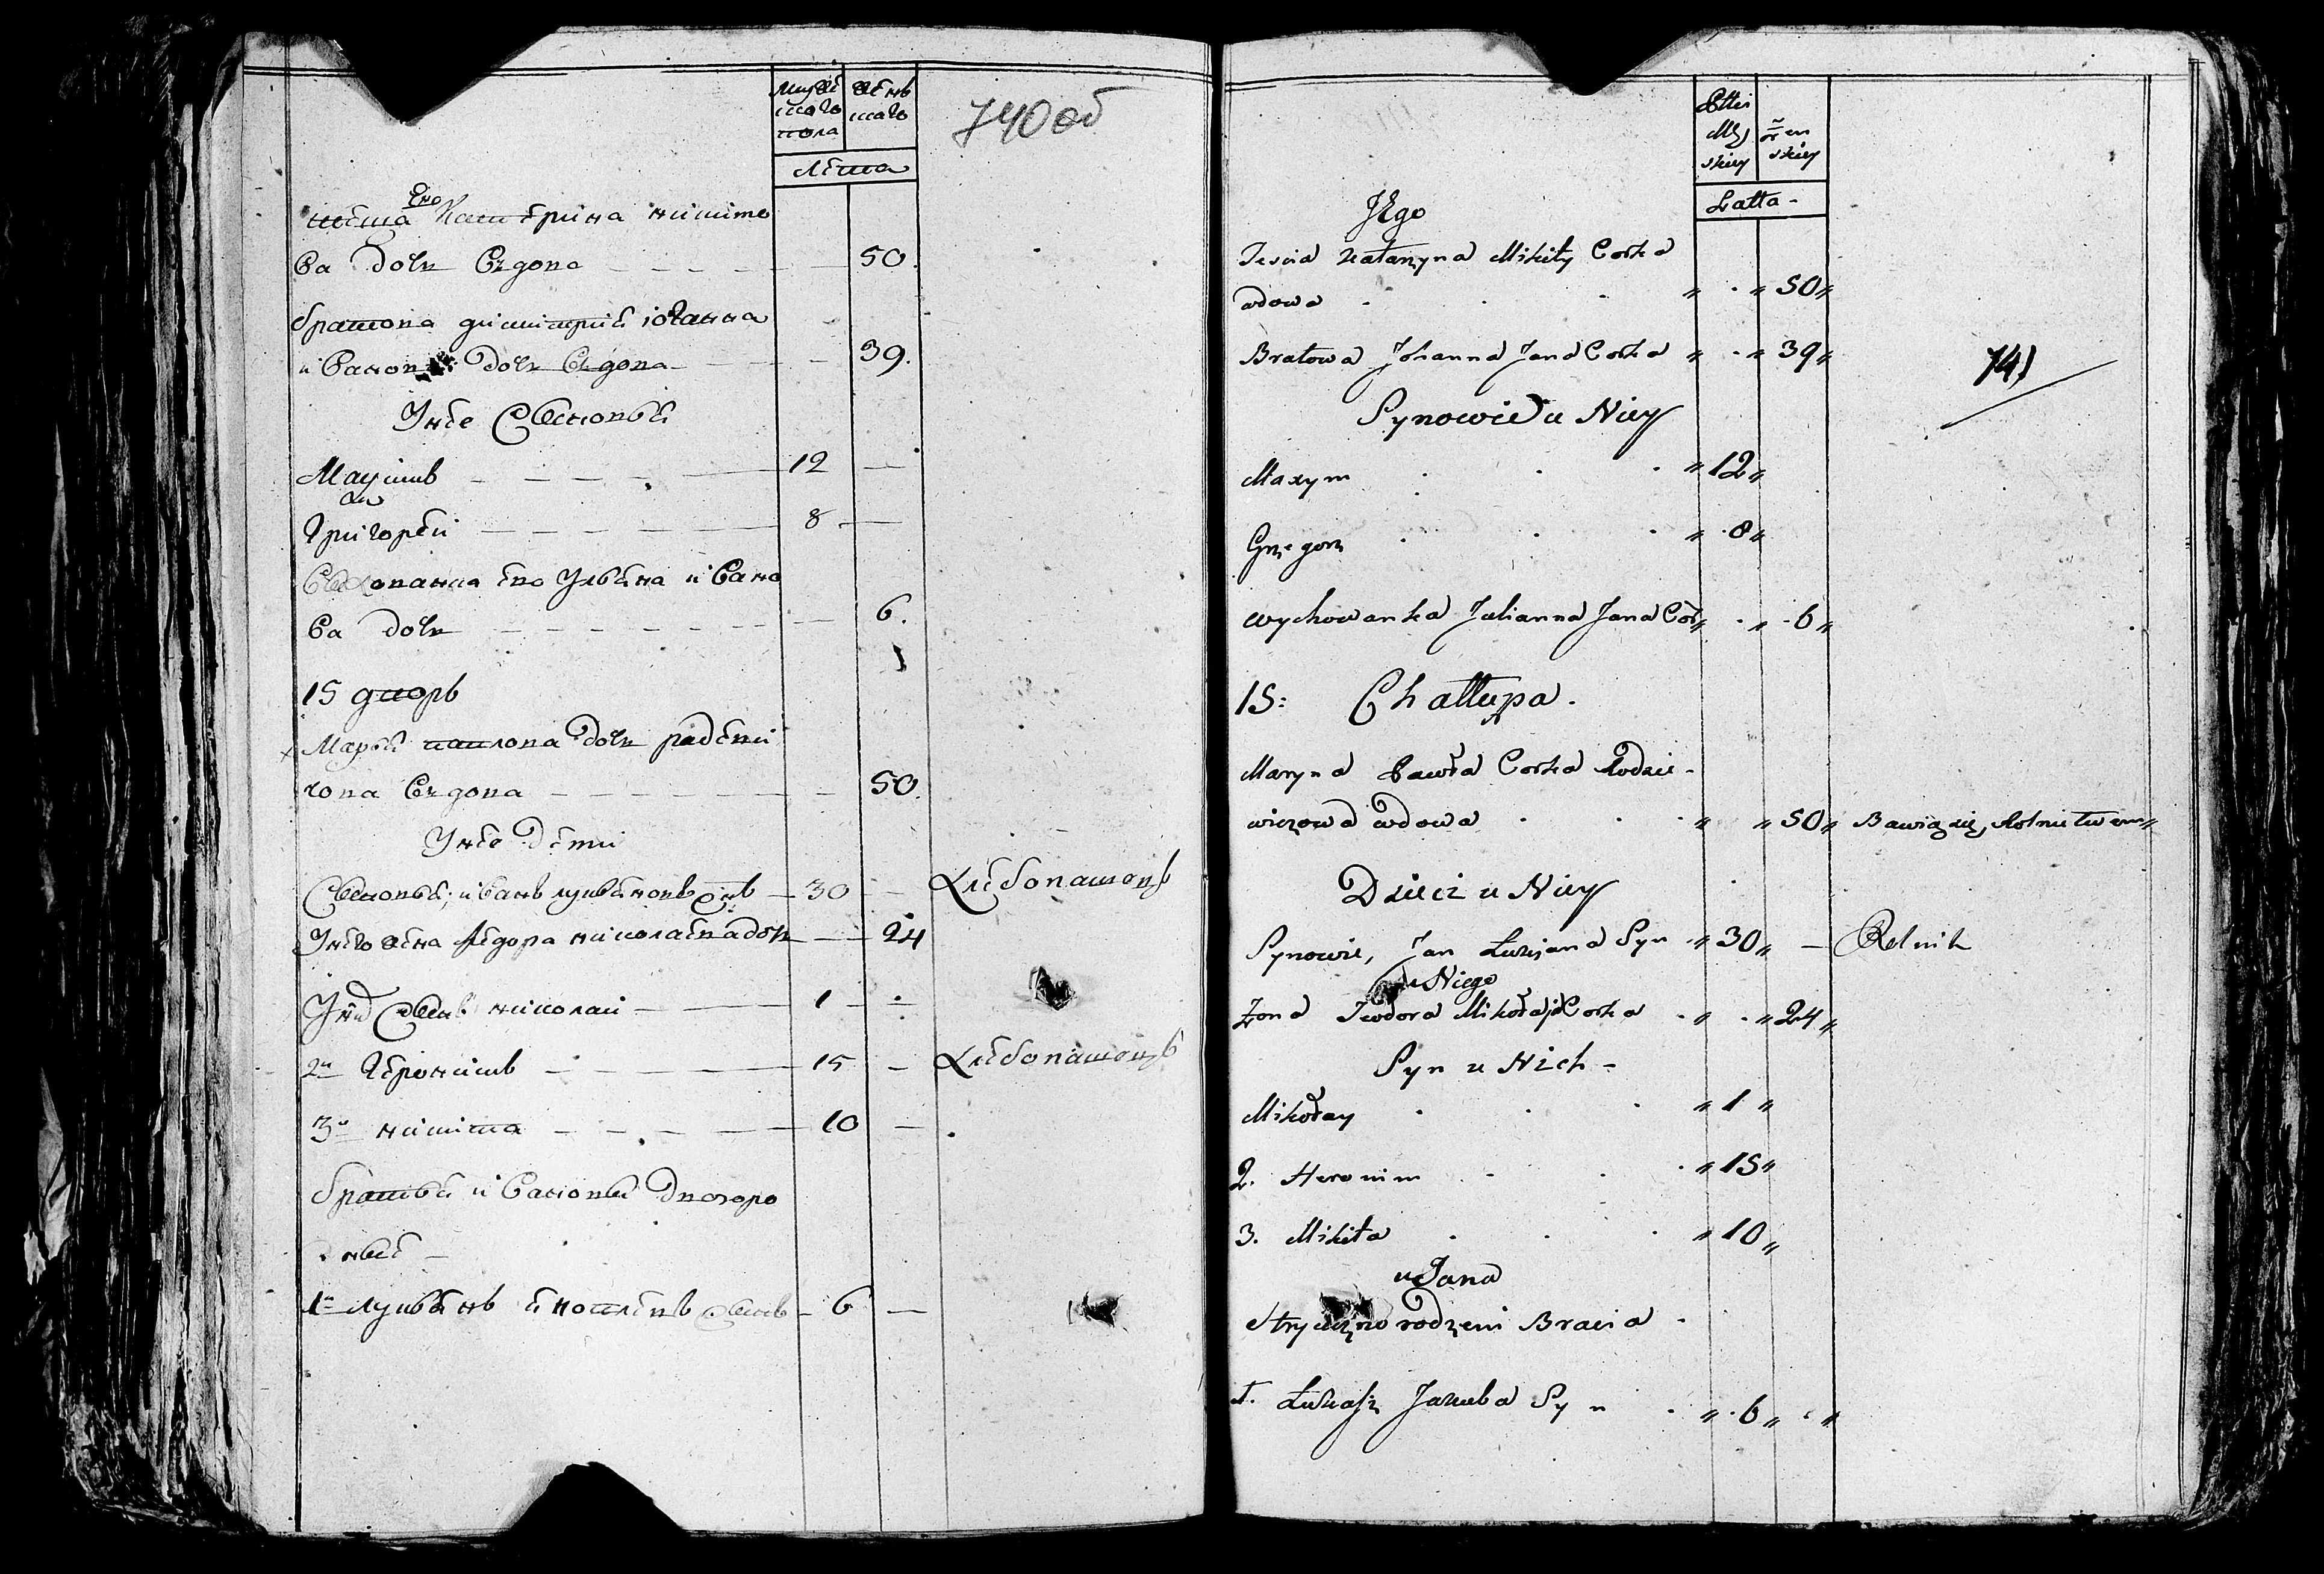 мужескаго пола
женскаго
740 об
Лета
его
теща Катерина никито
ва дочь вдова 50.
братова димитрия иоганна
иванова дочь вдова 39.
У нее сыновья
Максимъ 12 —
Григорей 8 —
его Ульяна ивано
ва дочь 6.
15 дворъ
Марья павлова дочь
вдова 50.
У нее дети
сыновья; иванъ лукьяновъ сынъ 30 — Хлебопашецъ
У него жена Федора николаева дочь — 24
У них сынъ николай 1 —
2й Иеронимъ 15 — Хлебопашецъ
3й никита 10 —
братья ивановы двоюро
дные
1й лукьянъ сынъ 6 —
Płci
Męz
skiey
żen
skiey
Latta -
741
Jego
Tescia Katarzyna Mikity Corka
wdowa 50
Bratowa Johanna Jana Corka 39
Synowie u Niey
Maxym 12
Grzegorz 8
Wychowanka Julianna Jana Cor 6
15: Chałłupa.
Maryna Pawła Corka Rodzie-
wiczowa wdowa 50 Bawią się Rolnictwem
Dzieci u Niey
Synowie, Jan Łukjana Syn 30 — Rolnik
u Niego
Żona Teodora Mikołaja Corka 24
Syn u Nich -
Mikołay 1
2. Heronim 15
3. Mikita 10
u Jana
Stryieczno rodzeni Bracia
1. Łukasz Jakuba Syn 6